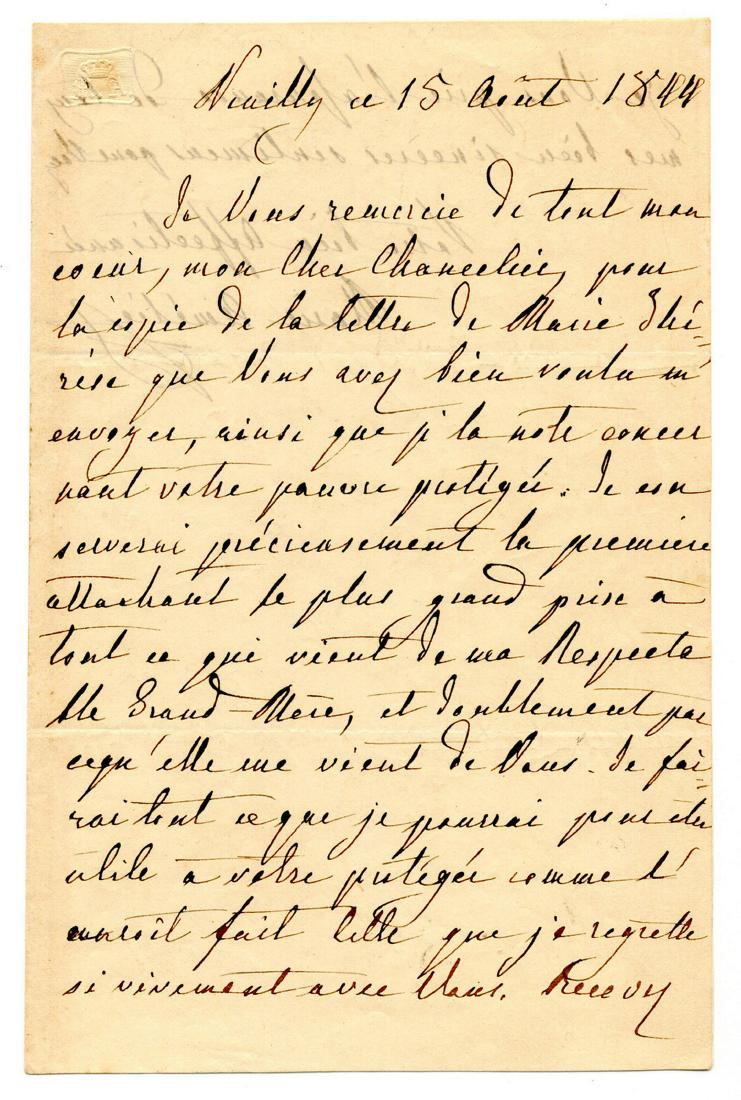 Neuilly ce 15 Août 1844
Je Vous remercie de tout mon
coeur, mon Cher Chancelier, pour
la copie de la lettre de Marie Thé=
rèse que Vous avez bien voulu m'
envoyer, ainsi que je la note concer
nant votre pauvre protégée. Je con
serverai précieusement la première
attachant le plus grand prise à
tout ce qui vient de ma Respecta
ble Grand-Mère, et doublement par
cequ'elle me vient de Vous. Je fai=
rai tout ce que je pourrai pour être
utile à votre protégée comme l'
auroit fait Celle que je regrette
si vivement avec Vous. Recevez